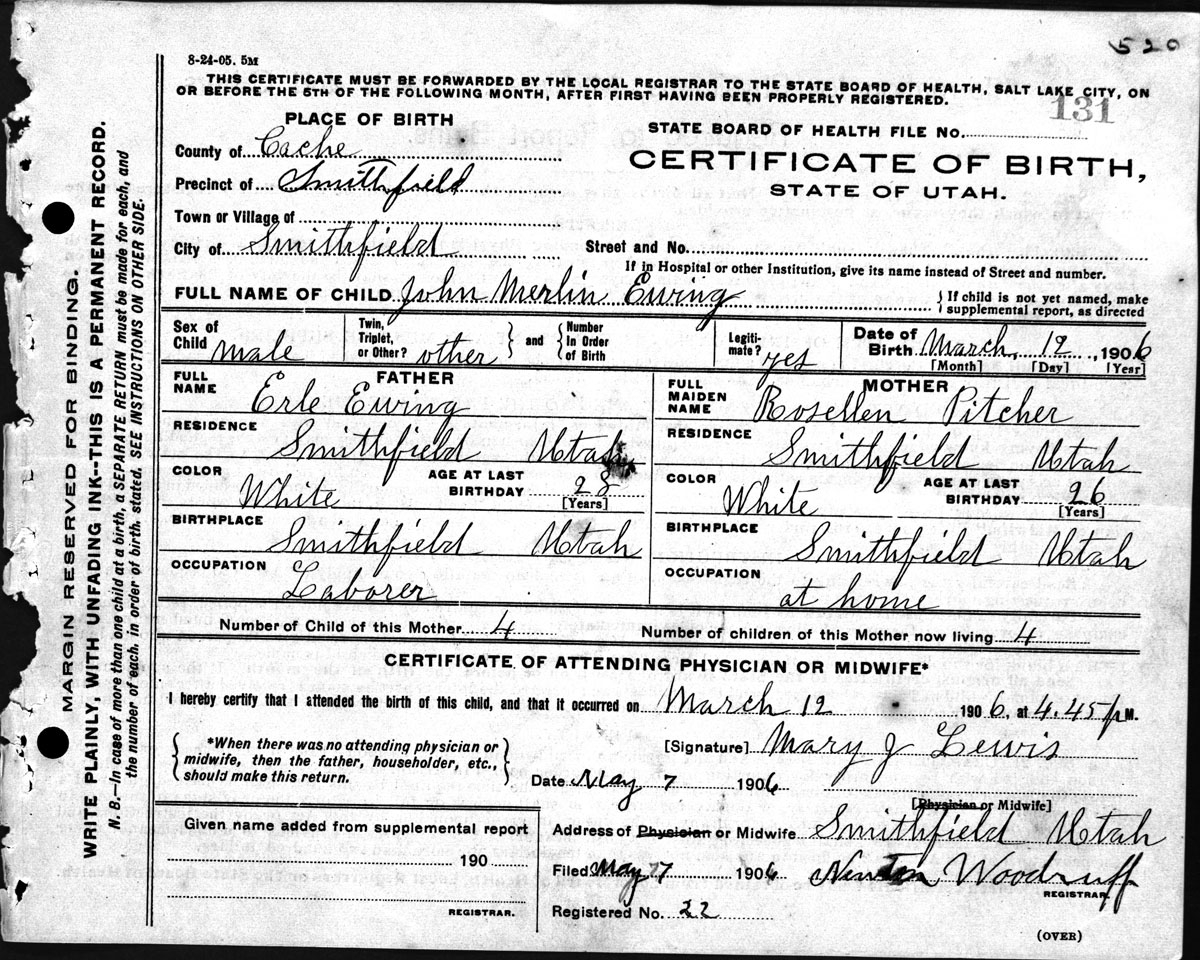 520
8-24-05. 5M
THIS CERTIFICATE MUST BE FORWARDED BY THE LOCAL REGISTRAR TO THE STATE BOARD OF HEALTH, SALT LAKE CITY, ON
OR BEFORE THE 5TH OF THE FOLLOWING MONTH, AFTER FIRST HAVING BEEN PROPERLY REGISTERED.
131
PLACE OF BIRTH
STATE BOARD OF HEALTH FILE No.
County of Cache
CERTIFICATE OF BIRTH,
Precinct of Smithfield
STATE OF UTAH.
Town or Village of
City of Smithfield
Street and No.
If in Hospital or other Institution, give its name instead of Street and number.
FULL NAME OF CHILD John Merlin Ewing
{ If child is not yet named, make
supplemental report, as directed
Sex of Child male
Twin, Triplet, or Other? other } and { Number In Order of Birth
Legiti-mate? yes
Date of Birth March 12, 1906
[Month] [Day] [Year]
FATHER
FULL NAME Erle Ewing
RESIDENCE Smithfield Utah
COLOR White
AGE AT LAST BIRTHDAY 28
[Years]
BIRTHPLACE Smithfield Utah
OCCUPATION Laborer
MOTHER
FULL MAIDEN NAME Rosellen Pitcher
RESIDENCE Smithfield Utah
COLOR White
AGE AT LAST BIRTHDAY 26
[Years]
BIRTHPLACE Smithfield Utah
OCCUPATION at home
Number of Child of this Mother 4
Number of children of this Mother now living 4
CERTIFICATE OF ATTENDING PHYSICIAN OR MIDWIFE*
I hereby certify that I attended the birth of this child, and that it occurred on March 12 1906, at 4.45 p M.
{ *When there was no attending physician or
midwife, then the father, householder, etc.,
should make this return. }
[Signature] Mary J Lewis
Date May 7 1906
[Physician or Midwife]
Given name added from supplemental report
190
REGISTRAR.
Address of Physician or Midwife Smithfield Utah
Filed May 7 1906 Newton Woodruff
REGISTRAR
Registered No. 22
(OVER)
MARGIN RESERVED FOR BINDING.
WRITE PLAINLY, WITH UNFADING INK--THIS IS A PERMANENT RECORD.
N. B.—In case of more than one child at a birth, a SEPARATE RETURN must be made for each, and
the number of each, in order of birth, stated. SEE INSTRUCTIONS ON OTHER SIDE.